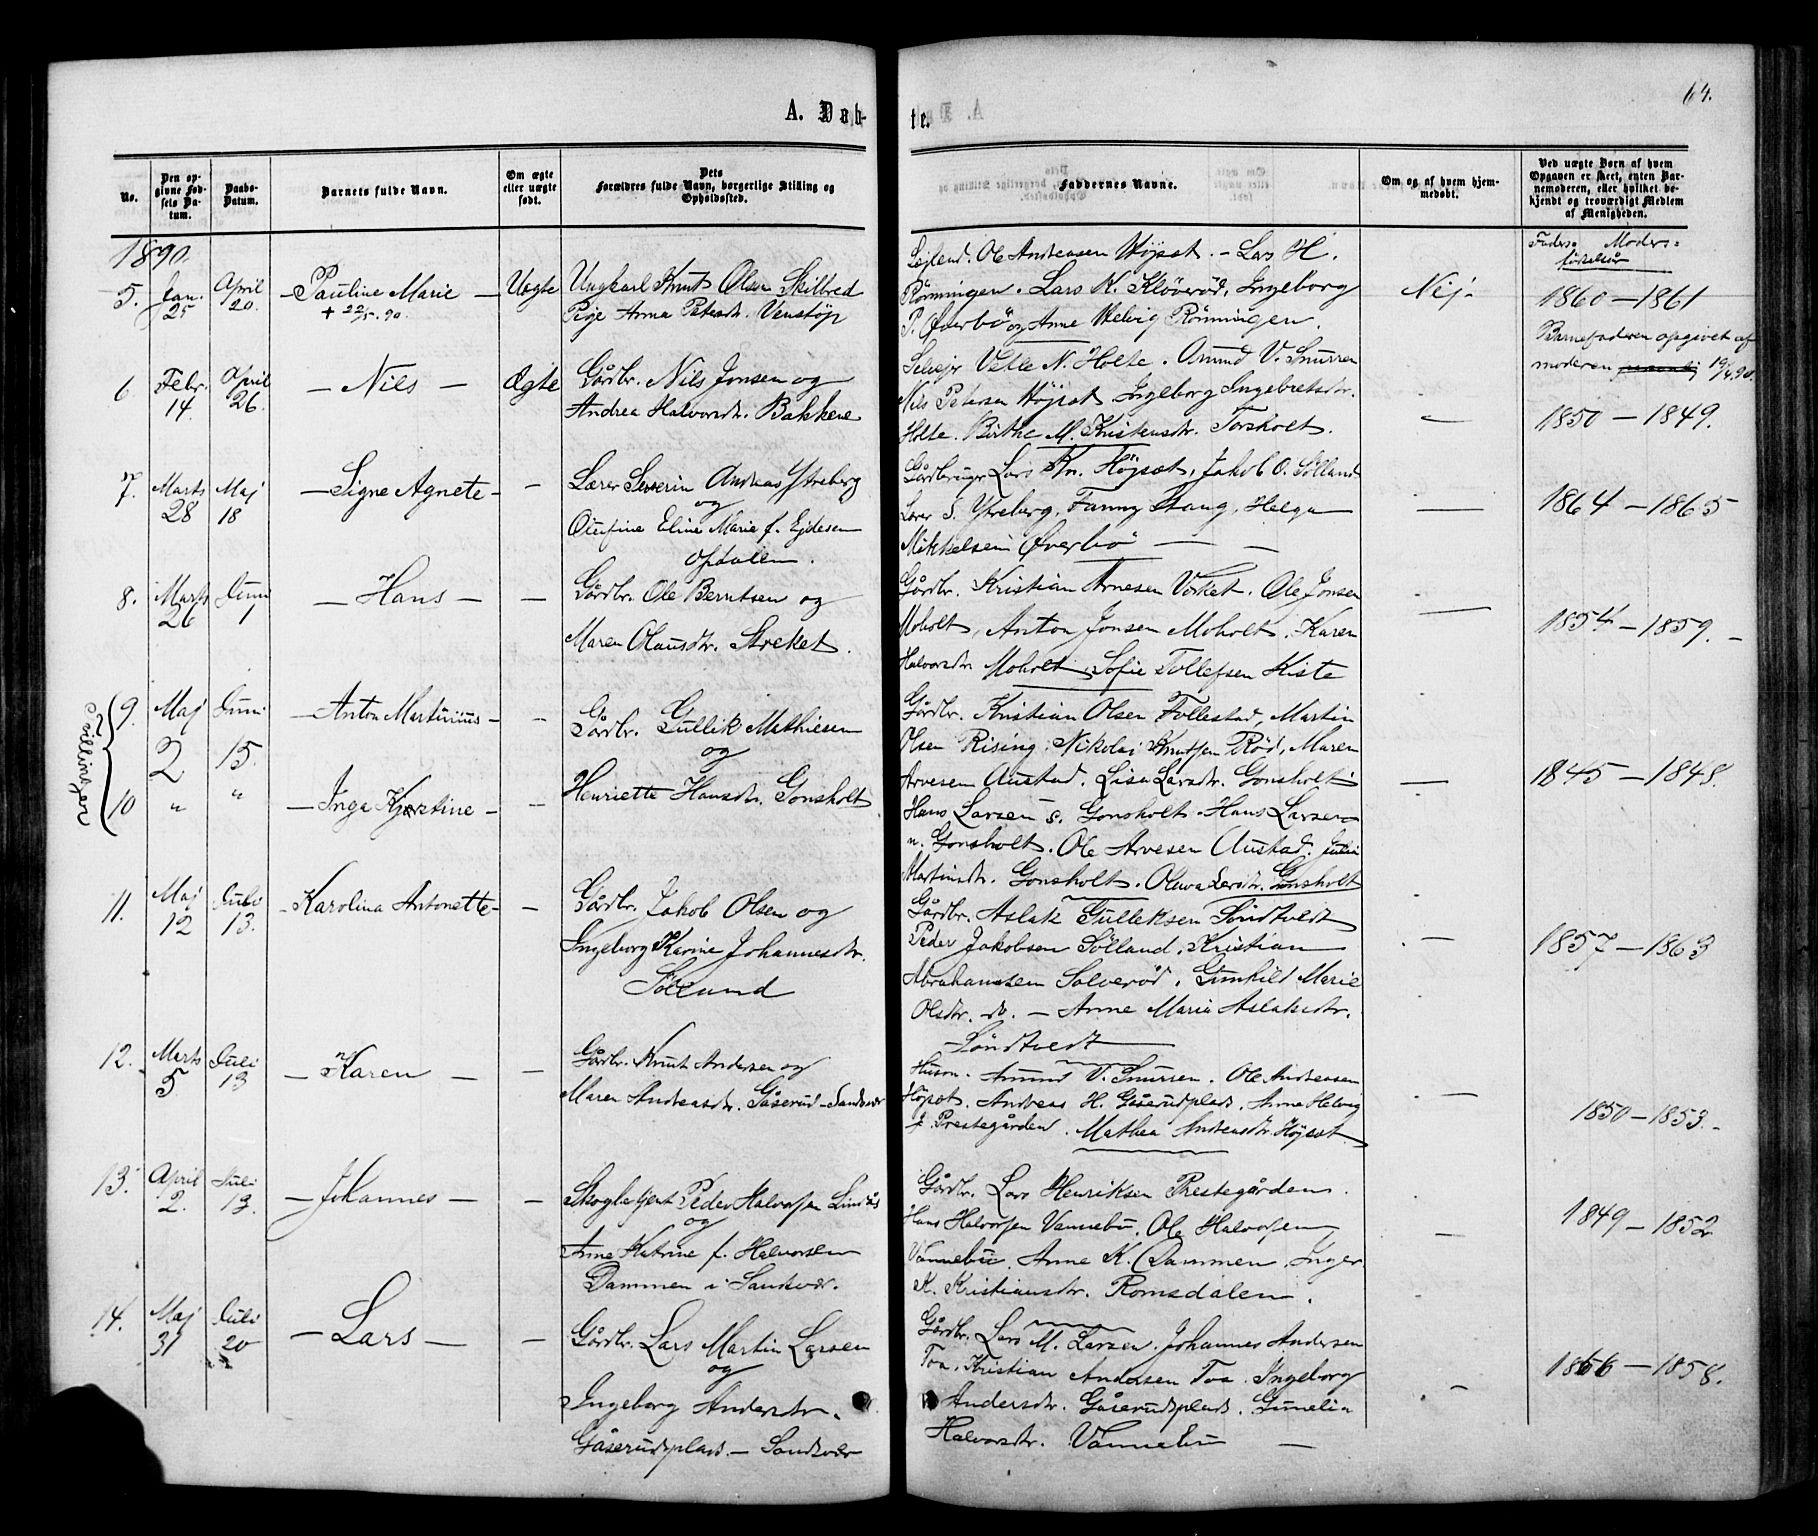 64.
A. Døb-
te.
No.
Den op-
givne Fød-
sels Da-
tum.
Daabs-
Datum.
Barnets fulde Navn.
Om ægte
eller uægte
født.
Dets
Forældres fulde Navn, borgerlige Stilling og
Opholdssted.
Faddernes Navne.
Om og af hvem hjem-
medøbt.
Ved uægte Børn af hvem
Opgaven er skeet, enten Bar-
nemoderen, eller hvilket be-
kjendt og troværdigt Medlem
af Menigheden.
1890
Faders- Moders-
fødselsår
5. Jan. 25 April 20. Pauline Marie Uægte
+ 22/5-90.
Ungkarl Knut Olsen Skilbred
Pige Anna Petersdr. Venstøp
Ole Andreasen Højset. - Lars H.
Rønningen. Lars K. Kløverød, Ingeborg
P. Øverbø og Anne Helvig Rønningen.
Nej.
1860 - 1861
Barnefaderen opgivet af
moderen 19/4.90.
6 Febr. 14. April 26. Nils Ægte
Gårdbr. Nils Jonsen og
Andrea Halvorsdr. Bakkene
Selvejr Vetle N. Holte. Amund V. Snurren
Nils Petersen Højset Ingeborg Ingebretsdr.
Holte. Birthe M. Kristensdr. Torsholt.
1850 - 1849.
7. Marts 28 Maj 18 Signe Agnete
Lærer Severin Andreas Ytreberg
og
Olufine Eline Marie f. Ejdesen
Opdalen.
Gårdbruger Lars Kn. Højset, Jakob O. Sølland
Lærer S. Ytreberg, Fanny Stang, Helga
Mikkelsen Øverbø
1864 - 1865
8. Marts 26 Juni 1 Hans
Gårdbr. Ole Berntsen og
Maren Olausdr. Streket.
Gårdbr. Kristian Arnesen Vesket. Ole Jonsen
Moholt, Anton Jonsen Moholt. Karen
Halvorsdr. Moholt, Sofie Tollefsen Kiste
1854 - 1859.
Tvillinger
9. Maj 2 Juni 15. Anton Martinius
Gårdbr. Gullik Mathiesen
og
Henriette Hansdr. Gonsholt
10 " " Inga Kjerstine
Gårdbr. Kristian Olsen Follestad, Martin
Olsen Rising, Nikolai Knutsen Rød, Maren
Arvesen Austad. Lisa Larsdr. Gonsholt
Hans Larsen s. Gonsholt. Hans Larsen
n. Gonsholt. Ole Arvesen Austad. Julie
Martinsdr. Gonsholt. Oleva Larsdr. Gonsholt
1845 - 1848.
11. Maj 12 Juli 13. Karolina Antonette
Gårdbr. Jakob Olsen og
Ingeborg Karine Johannesdr.
Sølland
Gårdbr. Aslak Gulleksen Søndtvedt
Peder Jakobsen Sølland, Kristian
Abrahamsen Solverød. Gunhild Marie
Olsdr. do. - Anne Marie Aslaksdr.
Søndtvedt
1857 - 1863
12. Marts 5 Juli 13 Karen
Gårdbr. Knut Andersen og
Maren Andreasdr. Gåserud - Sandsvær
Husm. Amund V. Snurren. Ole Andreasen
Højset. Andreas H. Gåserudplads. Anne Helvig
f. Prestegården. Mathea Andreasdr. Højset
1850 - 1853.
13. April 2. Juli 13. Johannes
Skogbetjent Peder Halvorsen Lindås
og
Anne Katrine f. Halvorsen
Dammen i Sandsvær.
Gårdbr. Lars Henriksen Prestegården.
Hans Halvorsen Vannebu, Ole Halvorsen
Vannebu. Anne K. Dammen. Inger
K. Kristiansdr. Romsdalen.
1849 - 1852
14. Maj 31 Juli 20 Lars
Gårdbr. Lars Martin Larsen
og
Ingeborg Andersdr.
Gåserudsplads - Sandsvær
Gårdbr. Lars M. Larsen. Johannes Andersen
Toa. Kristian Andersen Toa. Ingeborg
Andersdr. Gåserudsplads.
Halvorsdr. Vannebu
1858.